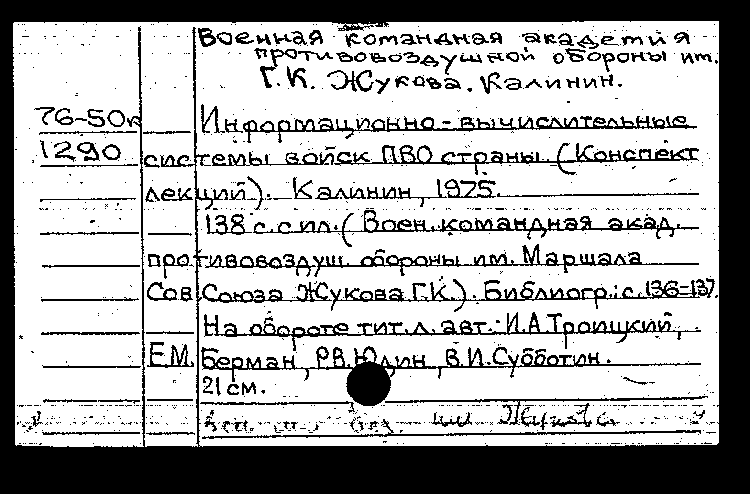 Военная командная академия
противовоздушной обороны им.
Г.К. Жукова. Калинин.
76-50к Информационно-вычислительные
1290 системы войск ПВО страны (Конспект
лекций). Калинин, 1975.
138 с. с ил. (Воен. командная акад.
противовоздуш. обороны им. Маршала
Сов. Союза Жукова Г.К.). Библиогр.: с. 136-137.
На обороте тит. л. авт.: И.А. Троицкий,
Е.М. Берман, Р.В. Юдин, В.И. Субботин.
21 см.
им Жукова